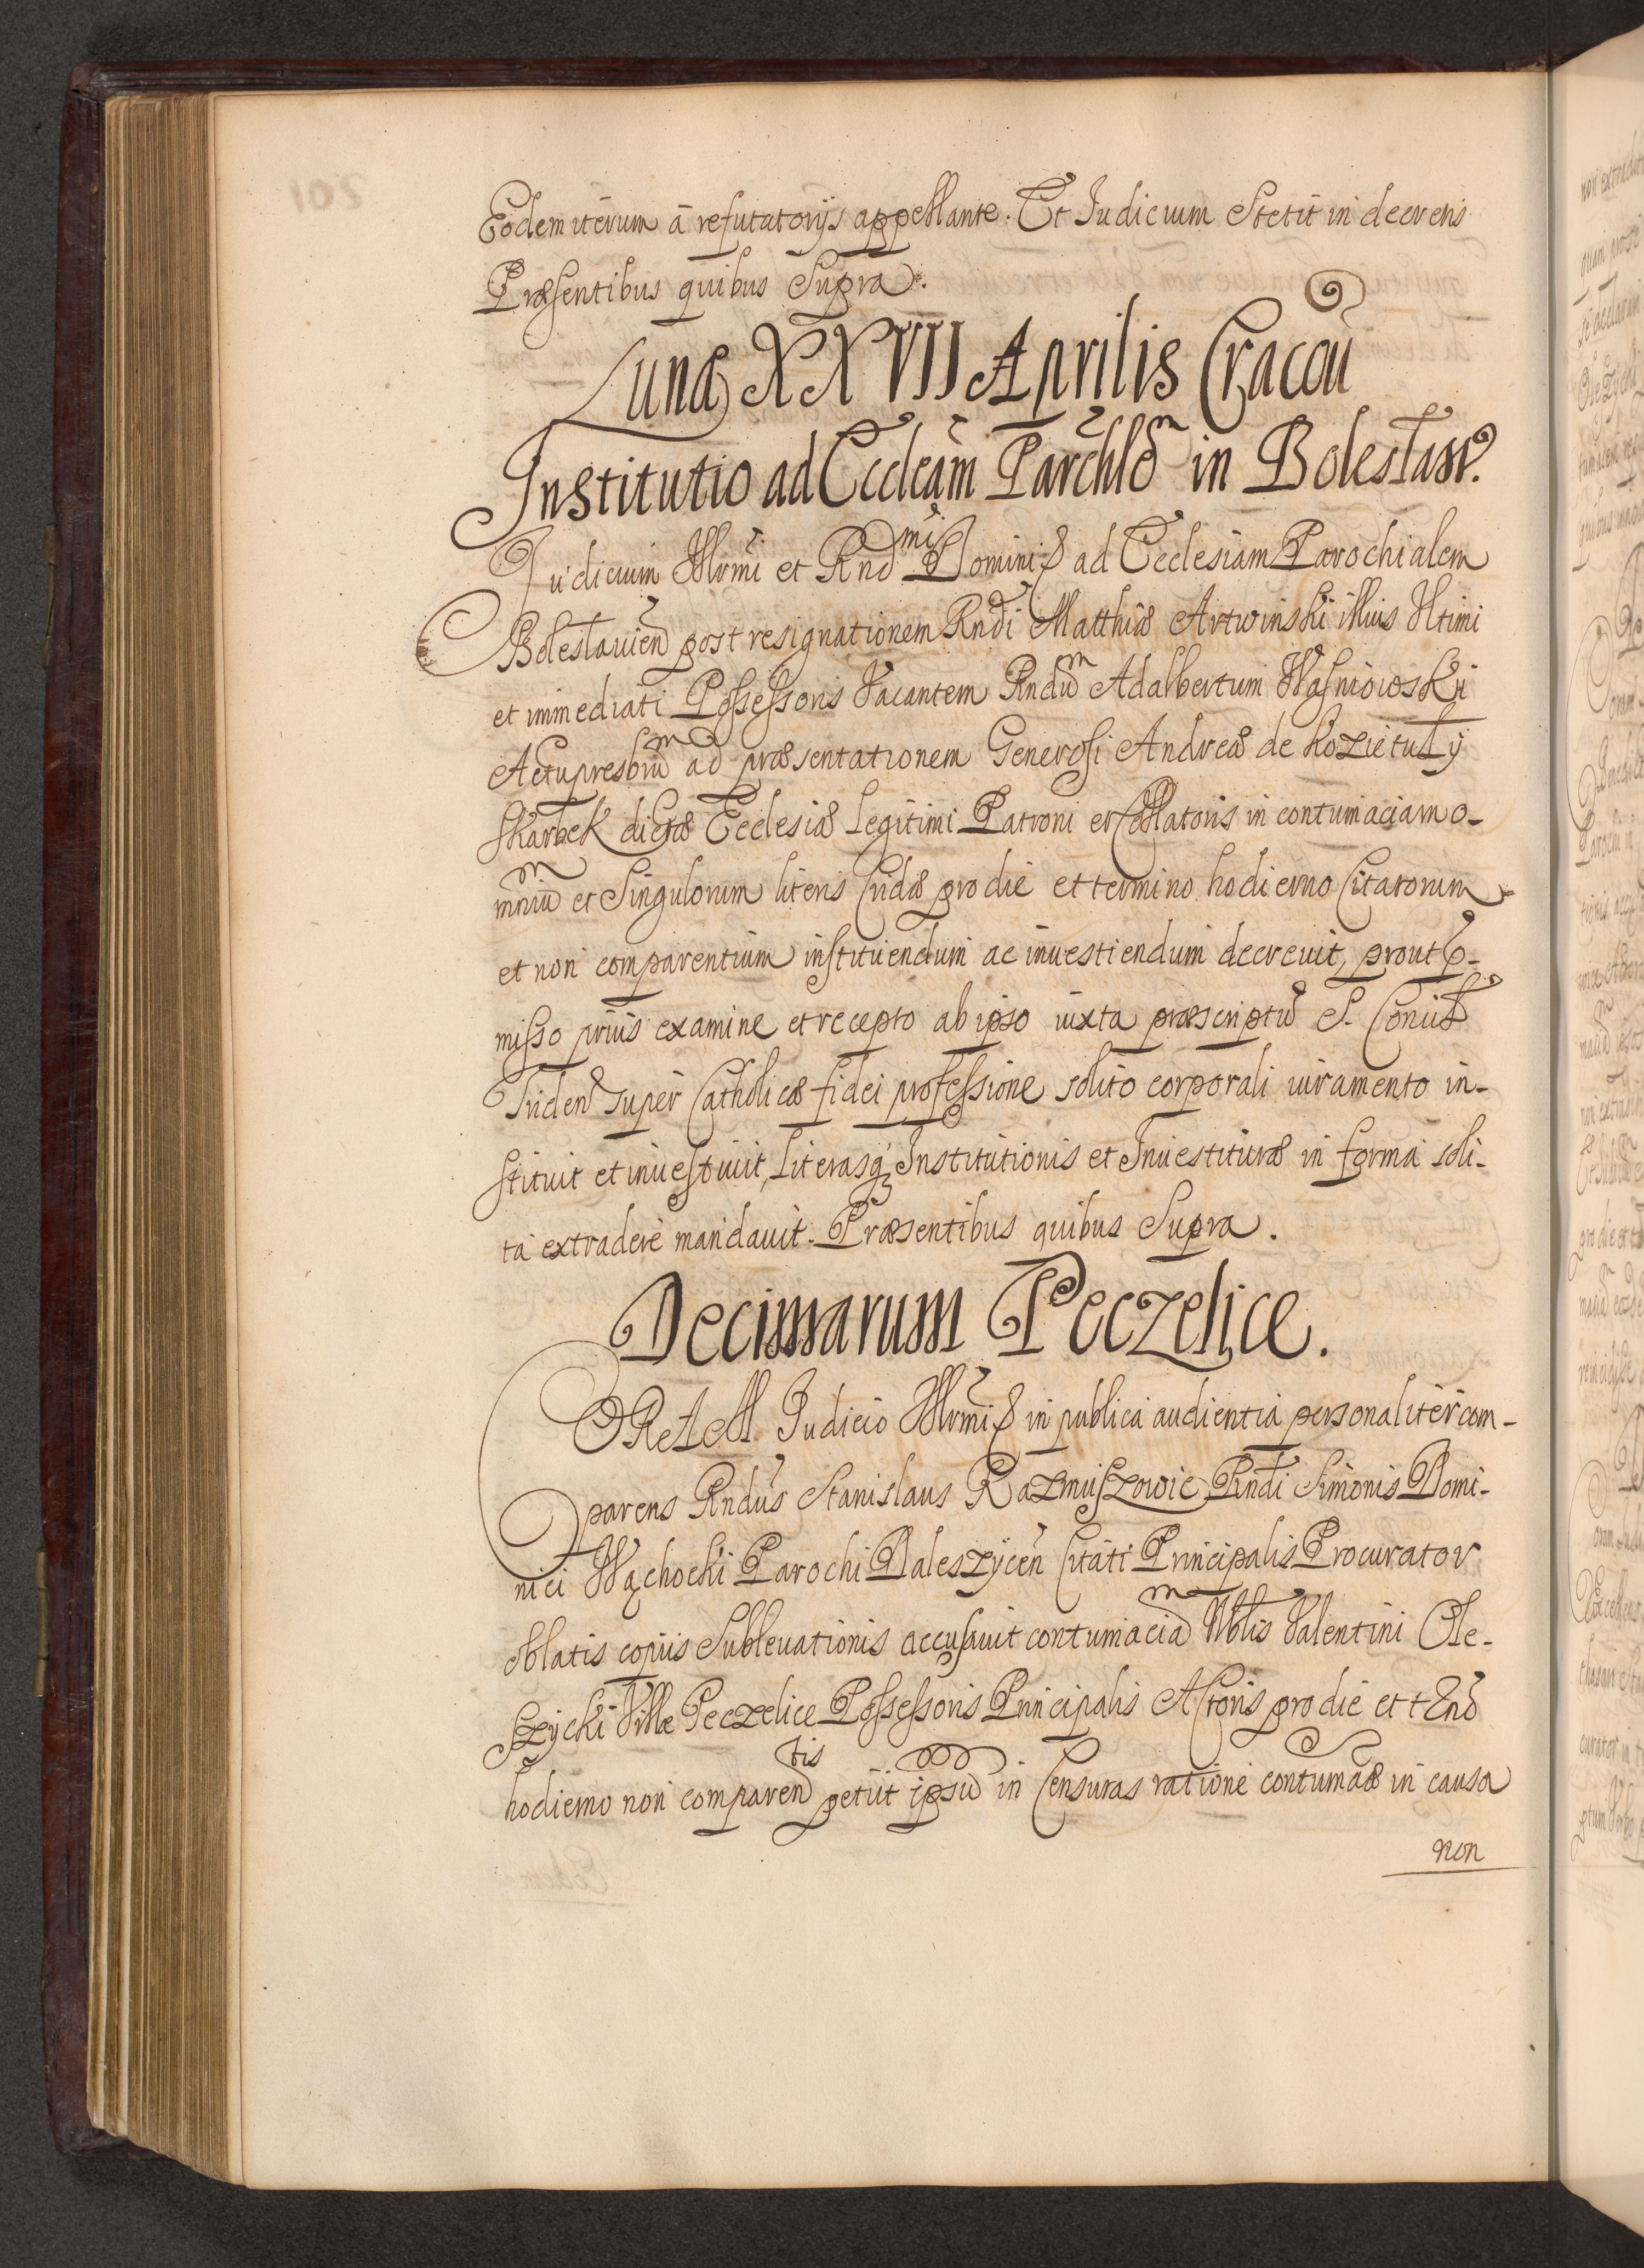 Eodem iterum a refutatorijs appellante. Et Judicium Stetit in decretis
Præsentibus quibus Supra.
Lunæ XXVII Aprilis Cracou
Institutio ad Eccleam Parochlem in Bolestaw.
Judicium Illrmi et Rndmi Domini ad Ecclesiam Parochialem
Bolestauien post resignationem Rndi Matthiæ Artwinski illius Vltimi
et immediati Possessoris Vacantem Rndum Adalbertum Wasniowski
Actupresbrum ad præsentationem Generosi Andreæ de Kozietuly
Skarbek dictæ Ecclesiæ Legitimi Patroni et Collatoris in contumaciam o-
mnium et Singulorum literis Cridæ pro die et termino hodierno Citatorum
et non comparentium instituendum ac inuestiendum decreuit, prout p-
misso prius examine et recepto ab ipso iuxta præscriptum S. Conii
Triden super Catholicæ fidei professione solito corporali iuramento in-
stituit et inuestiuit, Literasq Institutionis et Inuestituræ in forma soli-
ta extradere mandauit. Præsentibus quibus Supra.
Decimarum Peczelice.
CORAM Judicio Illrmi in publica audientia personaliter com-
parens Rndus Stanislaus Razmuszowic Rndi Simonis Domi-
nici Wąchocki Parochi Daleszycen Citati Principalis Procurator
oblatis copiis Subleuationis accusauit contumaciam Nblis Valentini Ole-
szycki Villæ Peczelice Possessoris Principalis Actoris pro die et tno
hodierno non comparentis petiit ipsum in Censuras ratione contumaæ in causa
non